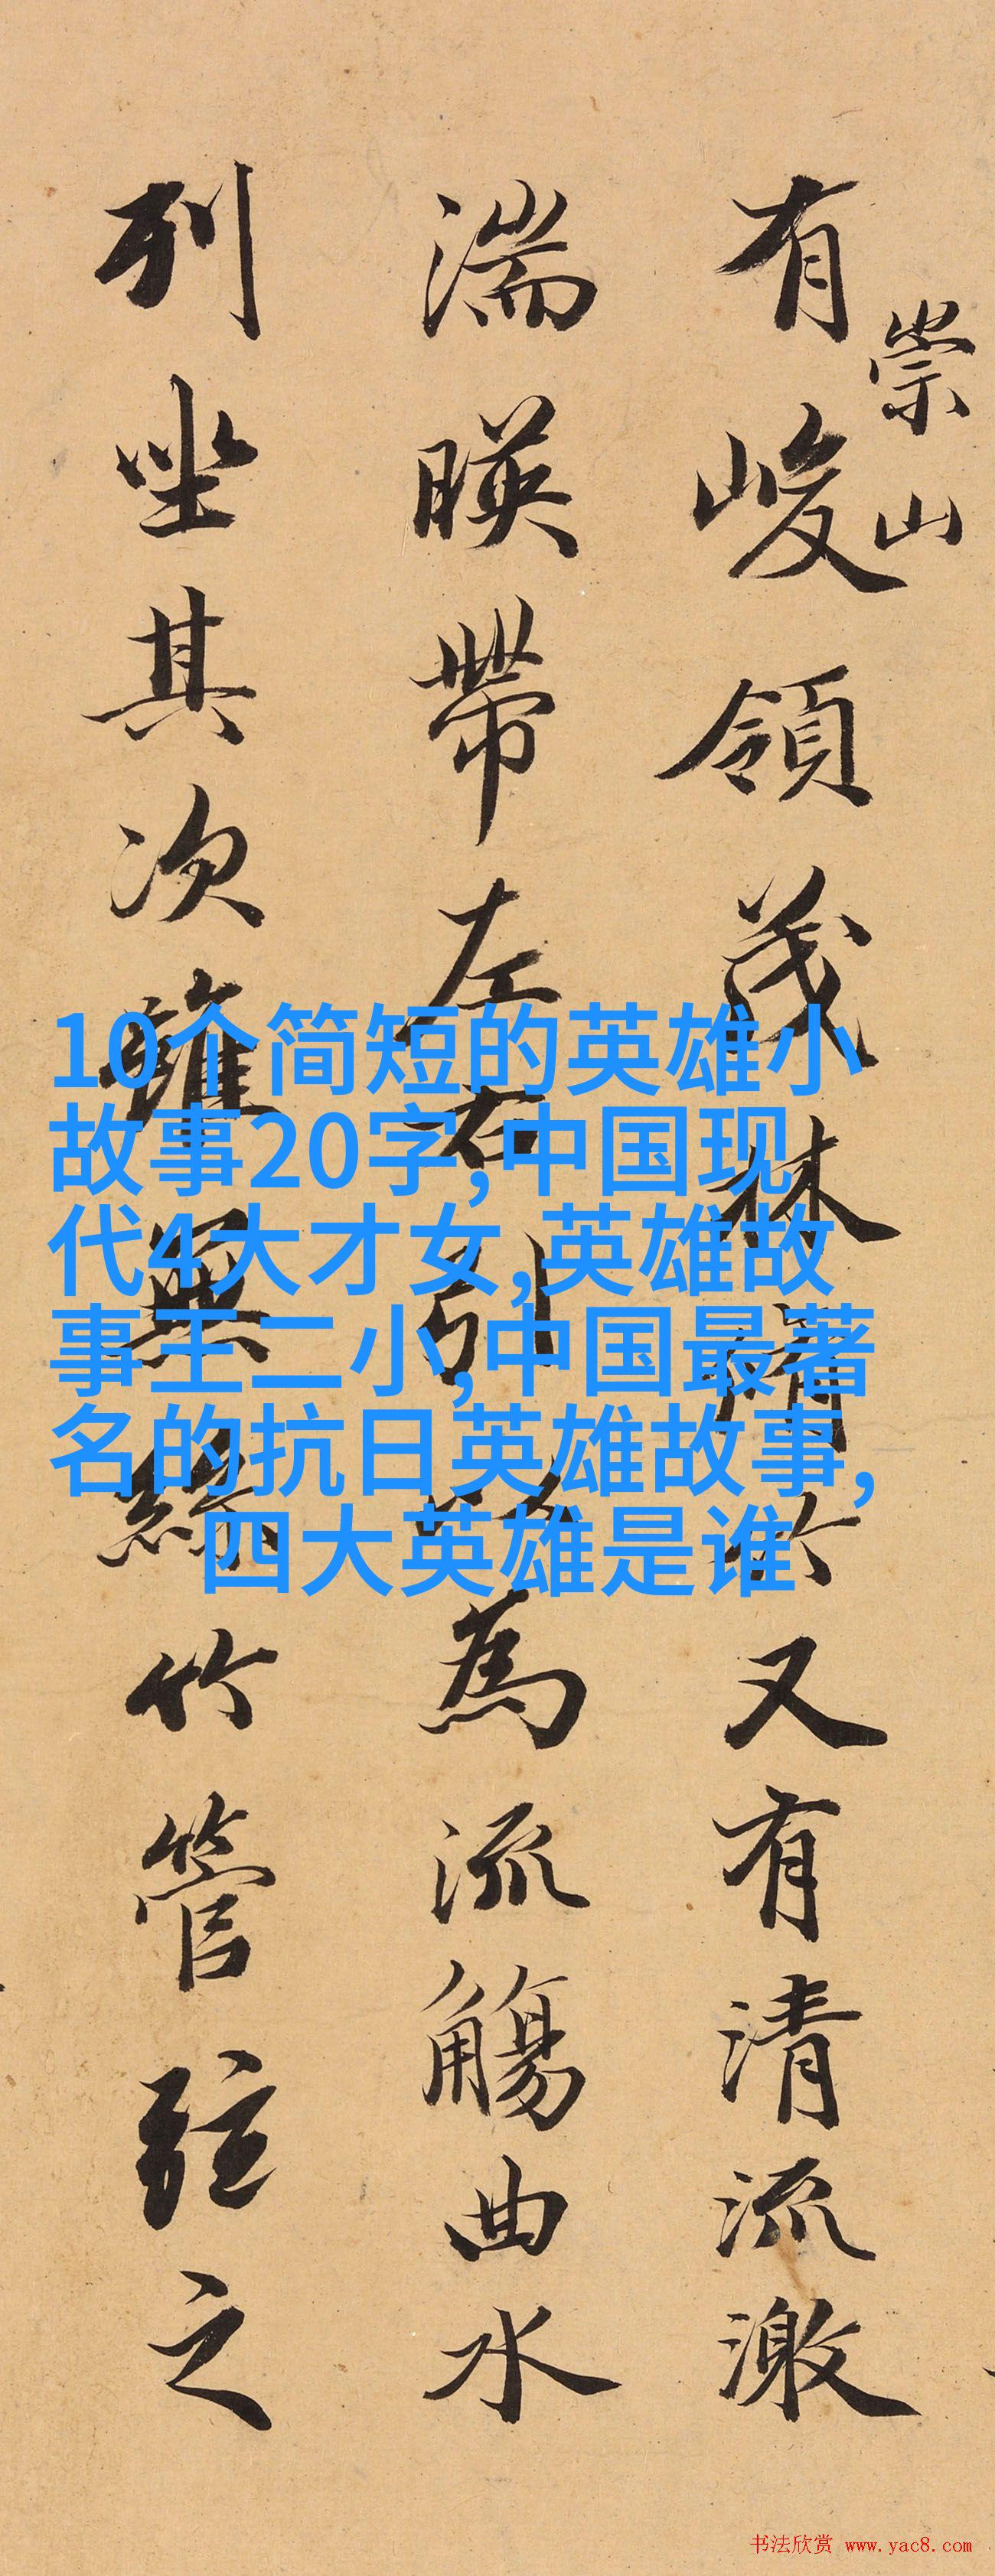 崇山
有峻領茂林脩竹又有清流激
湍暎帶左右引以為流觴曲水
列坐其次雖無絲竹管弦之
10个简短的英雄小
故事20字,中国现
代4大才女,英雄故
事王二小,中国最著
名的抗日英雄故事,
四大英雄是谁
书法欣赏 www.yac8.com